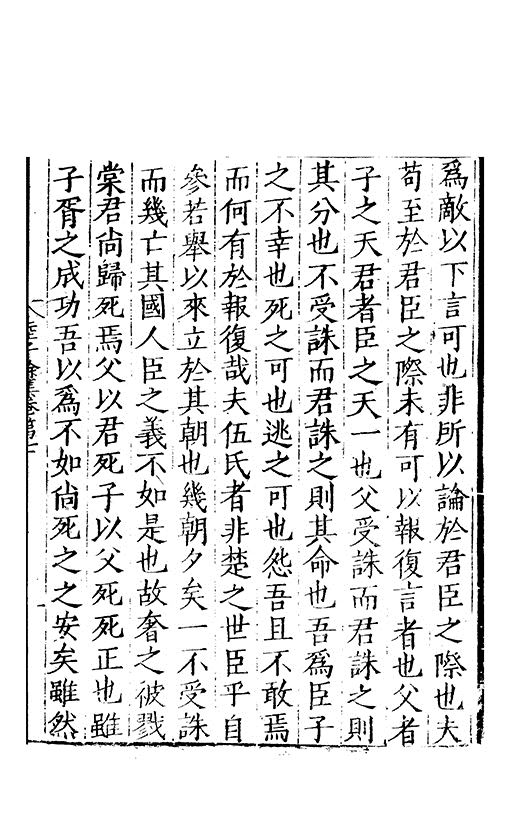 爲敵以下言可也非所以論於君臣之際也夫
苟至於君臣之際未有可以報復言者也父者
子之天君者臣之天一也父受誅而君誅之則
其分也不受誅而君誅之則其命也吾爲臣子
之不幸也死之可也逃之可也怨吾且不敢焉
而何有於報復哉夫伍氏者非楚之世臣乎自
參若舉以來立於其朝也幾朝夕矣一不受誅
而幾亡其國人臣之義不如是也故奢之彼戮
棠君尙歸死焉父以君死子以父死死正也雖
子胥之成功吾以爲不如尙死之之安矣雖然
卷第七